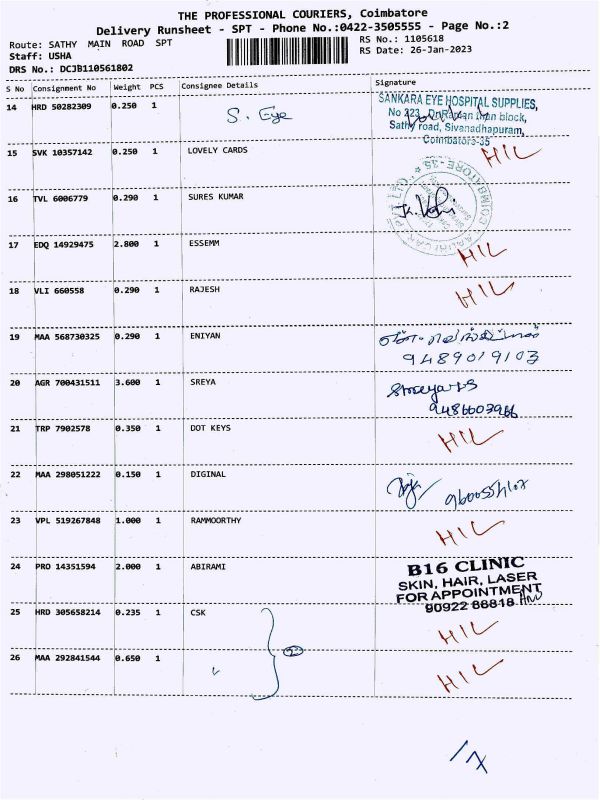 THE PROFESSIONAL COURIERS, Coimbatore
Delivery Runsheet - SPT - Phone No.:0422-3505555 - Page No.:2
Route: SATHY MAIN ROAD SPT
RS No.: 1105618
Staff: USHA
RS Date: 26-Jan-2023
DRS No.: DCJB110561802
S No Consignment No Weight PCS Consignee Details Signature
14 HRD 50282309 0.250 1 S. Eye
SANKARA EYE HOSPITAL SUPPLIES,
No 223, block,
Sathy road, Sivanadhapuram,
Coimbatore-35
15 SVK 10357142 0.250 1 LOVELY CARDS HIL
16 TVL 6006779 0.290 1 SURES KUMAR
17 EDQ 14929475 2.800 1 ESSEMM HIL
18 VLI 660558 0.290 1 RAJESH HIL
19 MAA 568730325 0.290 1 ENIYAN
9489019103
20 AGR 700431511 3.600 1 SREYA
9486603966
21 TRP 7902578 0.350 1 DOT KEYS HIL
22 MAA 298051222 0.150 1 DIGINAL
23 VPL 519267848 1.000 1 RAMMOORTHY HIL
24 PRO 14351594 2.000 1 ABIRAMI
B16 CLINIC
SKIN, HAIR, LASER
FOR APPOINTMENT
90922 88818
25 HRD 305658214 0.235 1 CSK HIL
26 MAA 292841544 0.650 1 HIL